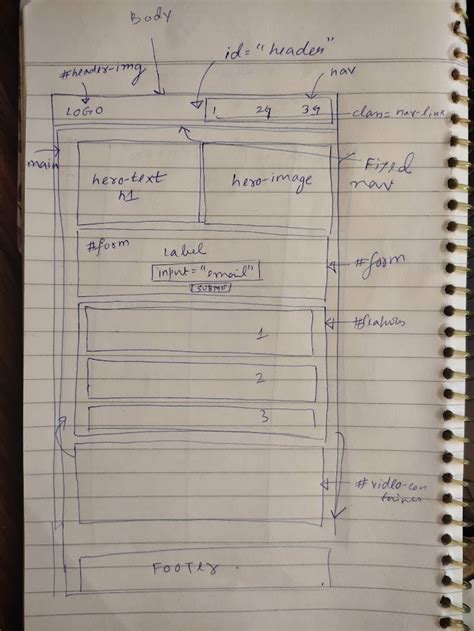 Body
id="header"
#header-img
nav
LOGO
1 2 3
class=nav-link
main
Fixed
nav
hero-text
h1
hero-image
#form
Label
input="email"
SUBMIT
#form
#features
1
2
3
#video-con
tainer
FOOTER